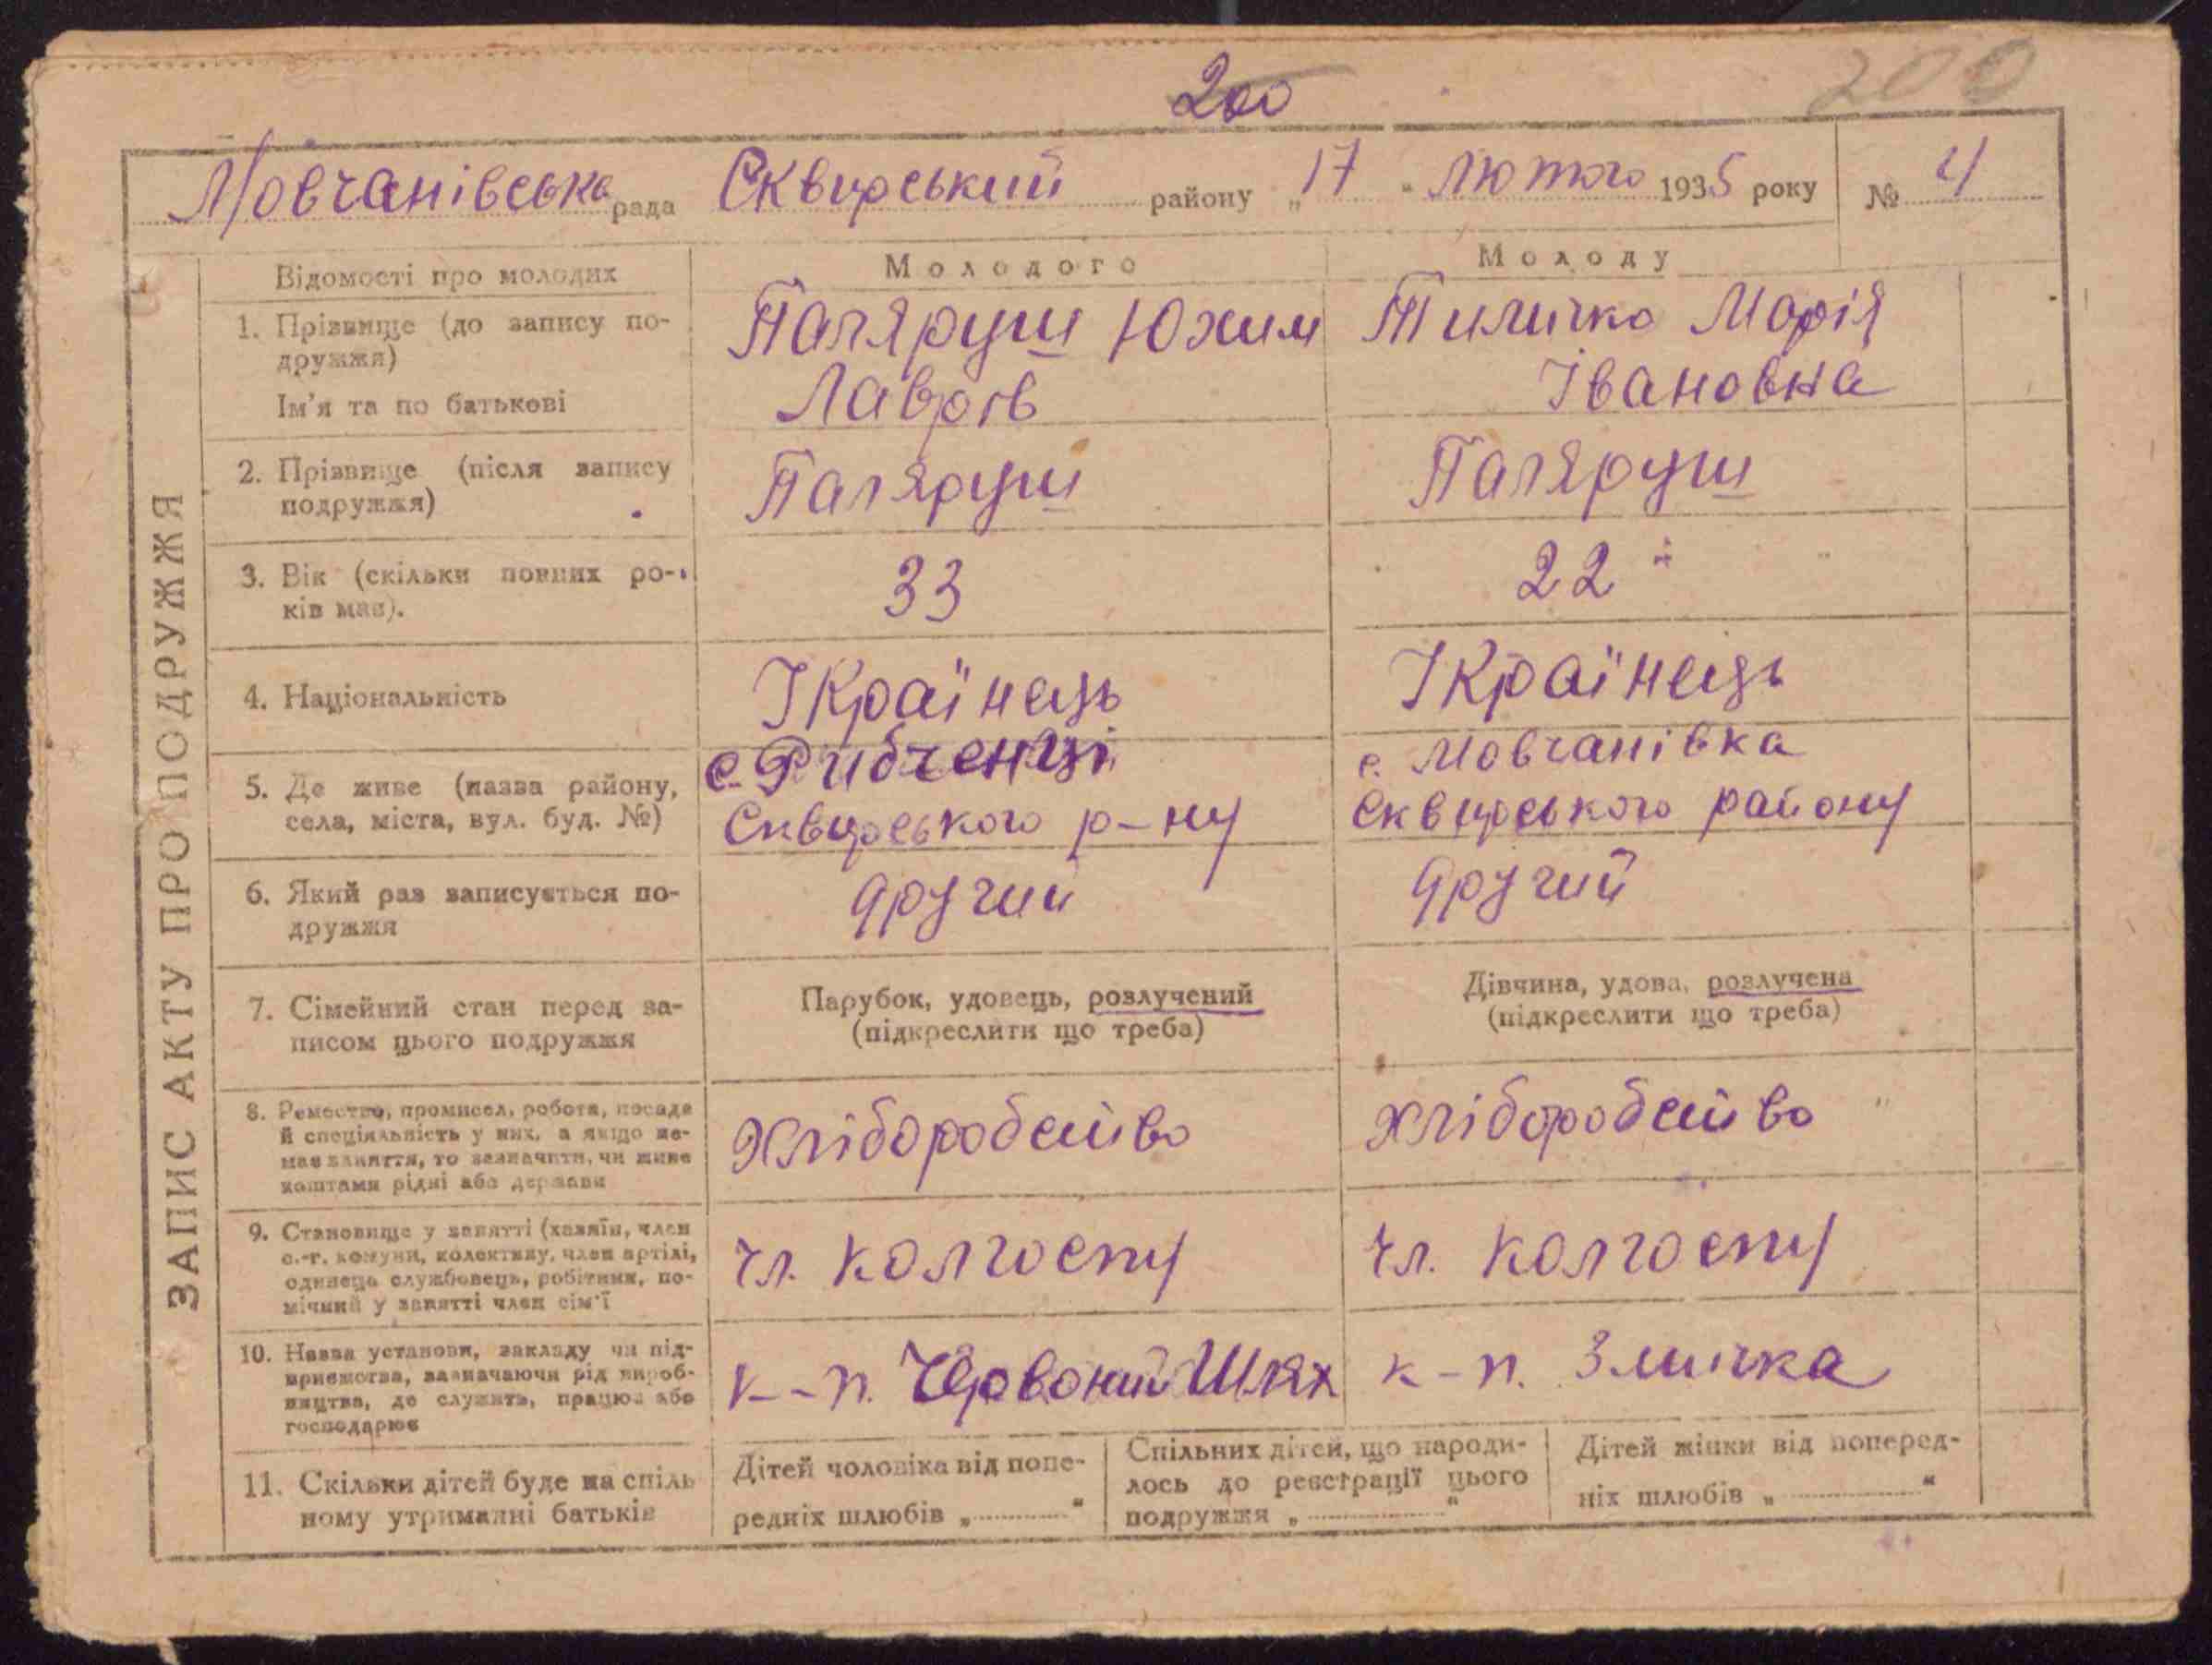 200
200
Мовчанівська рада Сквирський району „17“ Лютого 1935 року № 4
ЗАПИС АКТУ ПРО ПОДРУЖЖЯ
Відомості про молодих
Молодого
Молоду
1. Прізвище (до запису по-
дружжя)
Ім'я та по батькові
Паляруш Юхим
Лаврів
Тиличко Марія
Івановна
2. Прізвище (після запису
подружжя)
Паляруш
Паляруш
3. Вік (скільки повних ро-
ків має).
33
22
4. Національність
Україінець
Україінець
5. Де живе (назва району,
села, міста, вул. буд. №)
с. Рибченці
Сквирського р-ну
с. Мовчанівка
Сквирського району
6. Який раз записується по-
дружжя
другий
другий
7. Сімейний стан перед за-
писом цього подружжя
Парубок, удовець, розлучений
(підкреслити що треба)
Дівчина, удова, розлучена
(підкреслити що треба)
8. Ремество, промисел, робота, посада
й спеціяльність у них, а якщо не-
має заняття, то зазначити, чи живе
коштами рідні або держави
Хліборобство
Хліборобство
9. Становище у занятті (хазяїн, член
с.-г. комуни, колективу, член артілі,
одинець службовець, робітник, по-
мічний у занятті член сім'ї
чл. колгоспу
чл. колгоспу
10. Назва установи, закладу чи під-
приємства, зазначаючи рід вироб-
ництва, де служить, працює або
господарює
к-п. Червоний Шлях
к-п. Змичка
11. Скільки дітей буде на спіль
ному утриманні батьків
Дітей чоловіка від попе-
редніх шлюбів „ “
Спільних дітей, що народи-
лось до реєстрації цього
подружжя „ “
Дітей жінки від поперед-
ніх шлюбів „ “